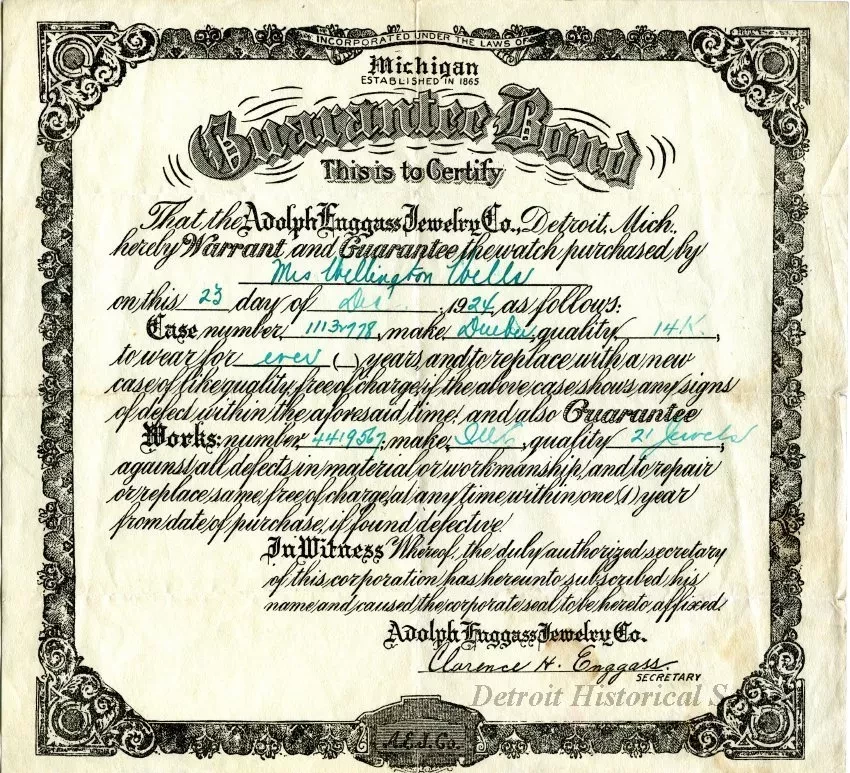 INCORPORATED UNDER THE LAWS OF
Michigan
ESTABLISHED IN 1865
Guarantee Bond
This is to Certify
That the Adolph Enggass Jewelry Co., Detroit, Mich.,
hereby Warrant and Guarantee the watch purchased by
Mrs Wellington Wells
on this 23 day of Dec. 1924, as follows:
Case number, make Dueber, quality 14K.,
to wear for ever ( ) years, and to replace with a new
case of like quality, free of charge, if the above case shows any signs
of defect within the aforesaid time: and also Guarantee
Works: number 4419567, make, quality 21 Jewels,
against all defects in material or workmanship, and to repair
or replace same, free of charge, at any time within one (1) year
from date of purchase, if found defective
In Witness Whereof, the duly authorized secretary
of this corporation has hereunto subscribed his
name and caused the corporate seal to be hereto affixed.
Adolph Enggass Jewelry Co.
Clarence H. Enggass.
SECRETARY
Detroit Historical S
A.E.J. Co.